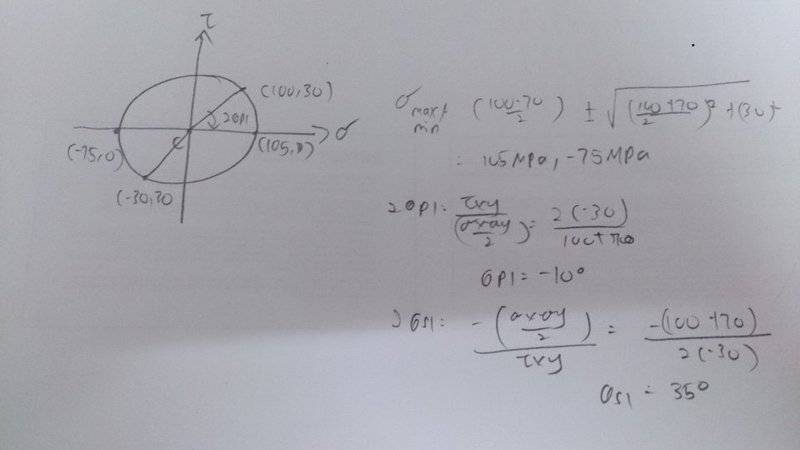 τ
(100,30)
2θP1
C
σ
(-75,0)
(105,0)
(-30,30
σ max/min (100-70/2) ± √(100+70/2)² + (30)²
= 105 MPa, -75 MPa
2θP1: τxy/(σxσy/2) = 2(-30)/100+70
θP1 = -10°
2θS1: -(σxσy/2)/τxy = -(100+70)/2(-30)
θS1 = 35°